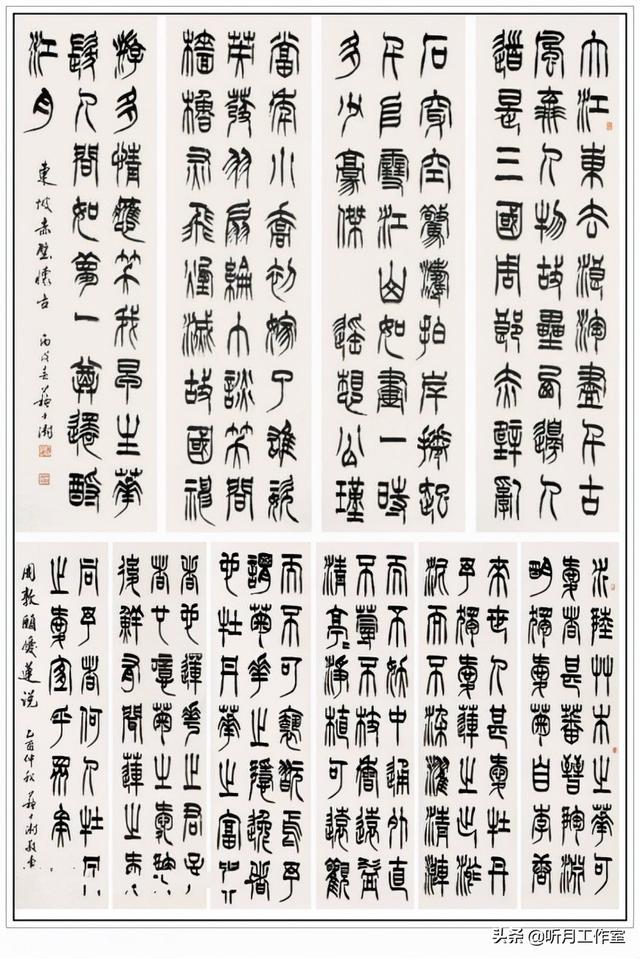 大江東去浪淘盡千古
風流人物故壘西邊人
道是三國周郎赤壁亂
石穿空驚濤拍岸捲起
千堆雪江山如畫一時
多少豪傑 遙想公瑾
當年小喬初嫁了雄姿
英發羽扇綸巾談笑間
檣櫓灰飛煙滅故國神
遊多情應笑我早生華
髮人間如夢一尊還酹
江月
東坡赤壁懷古 丙戌春 蘇士澍
水陸草木之華可
愛者甚蕃晉陶淵
明獨愛菊自李唐
來世人甚愛牡丹
予獨愛蓮之出淤
泥而不染濯清漣
而不妖中通外直
不蔓不枝香遠益
清亭=淨植可遠觀
而不可褻翫焉予
謂菊華之隱逸者
也牡丹華之富
者也蓮華之君子
者也噫菊之愛陶
後鮮有聞蓮之愛
同予者何人牡丹
之愛宜乎眾矣
周敦頤愛蓮說 乙酉仲秋 蘇士澍敬書
头条 @听月工作室